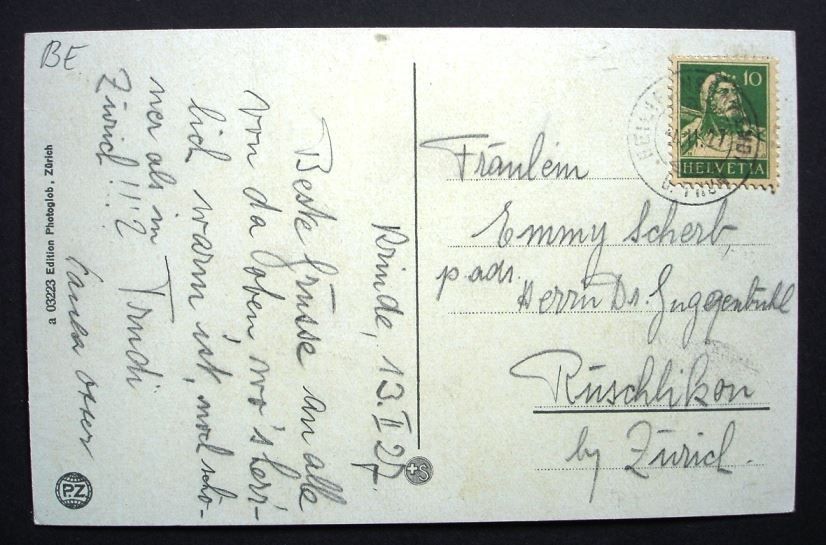 BE
Brinde, 13. II 27.
Beste Grüsse an alle
von da oben, wo's herr-
lich warm ist, noch schö-
ner als in
Zürich!!!? Trudi
Fräulein
Emmy Scherb,
p adr.
Herrn Dr Guggenbühl
Rüschlikon
by Zürich.
10
HELVETIA
a 03223 Edition Photoglob, Zürich
PZ